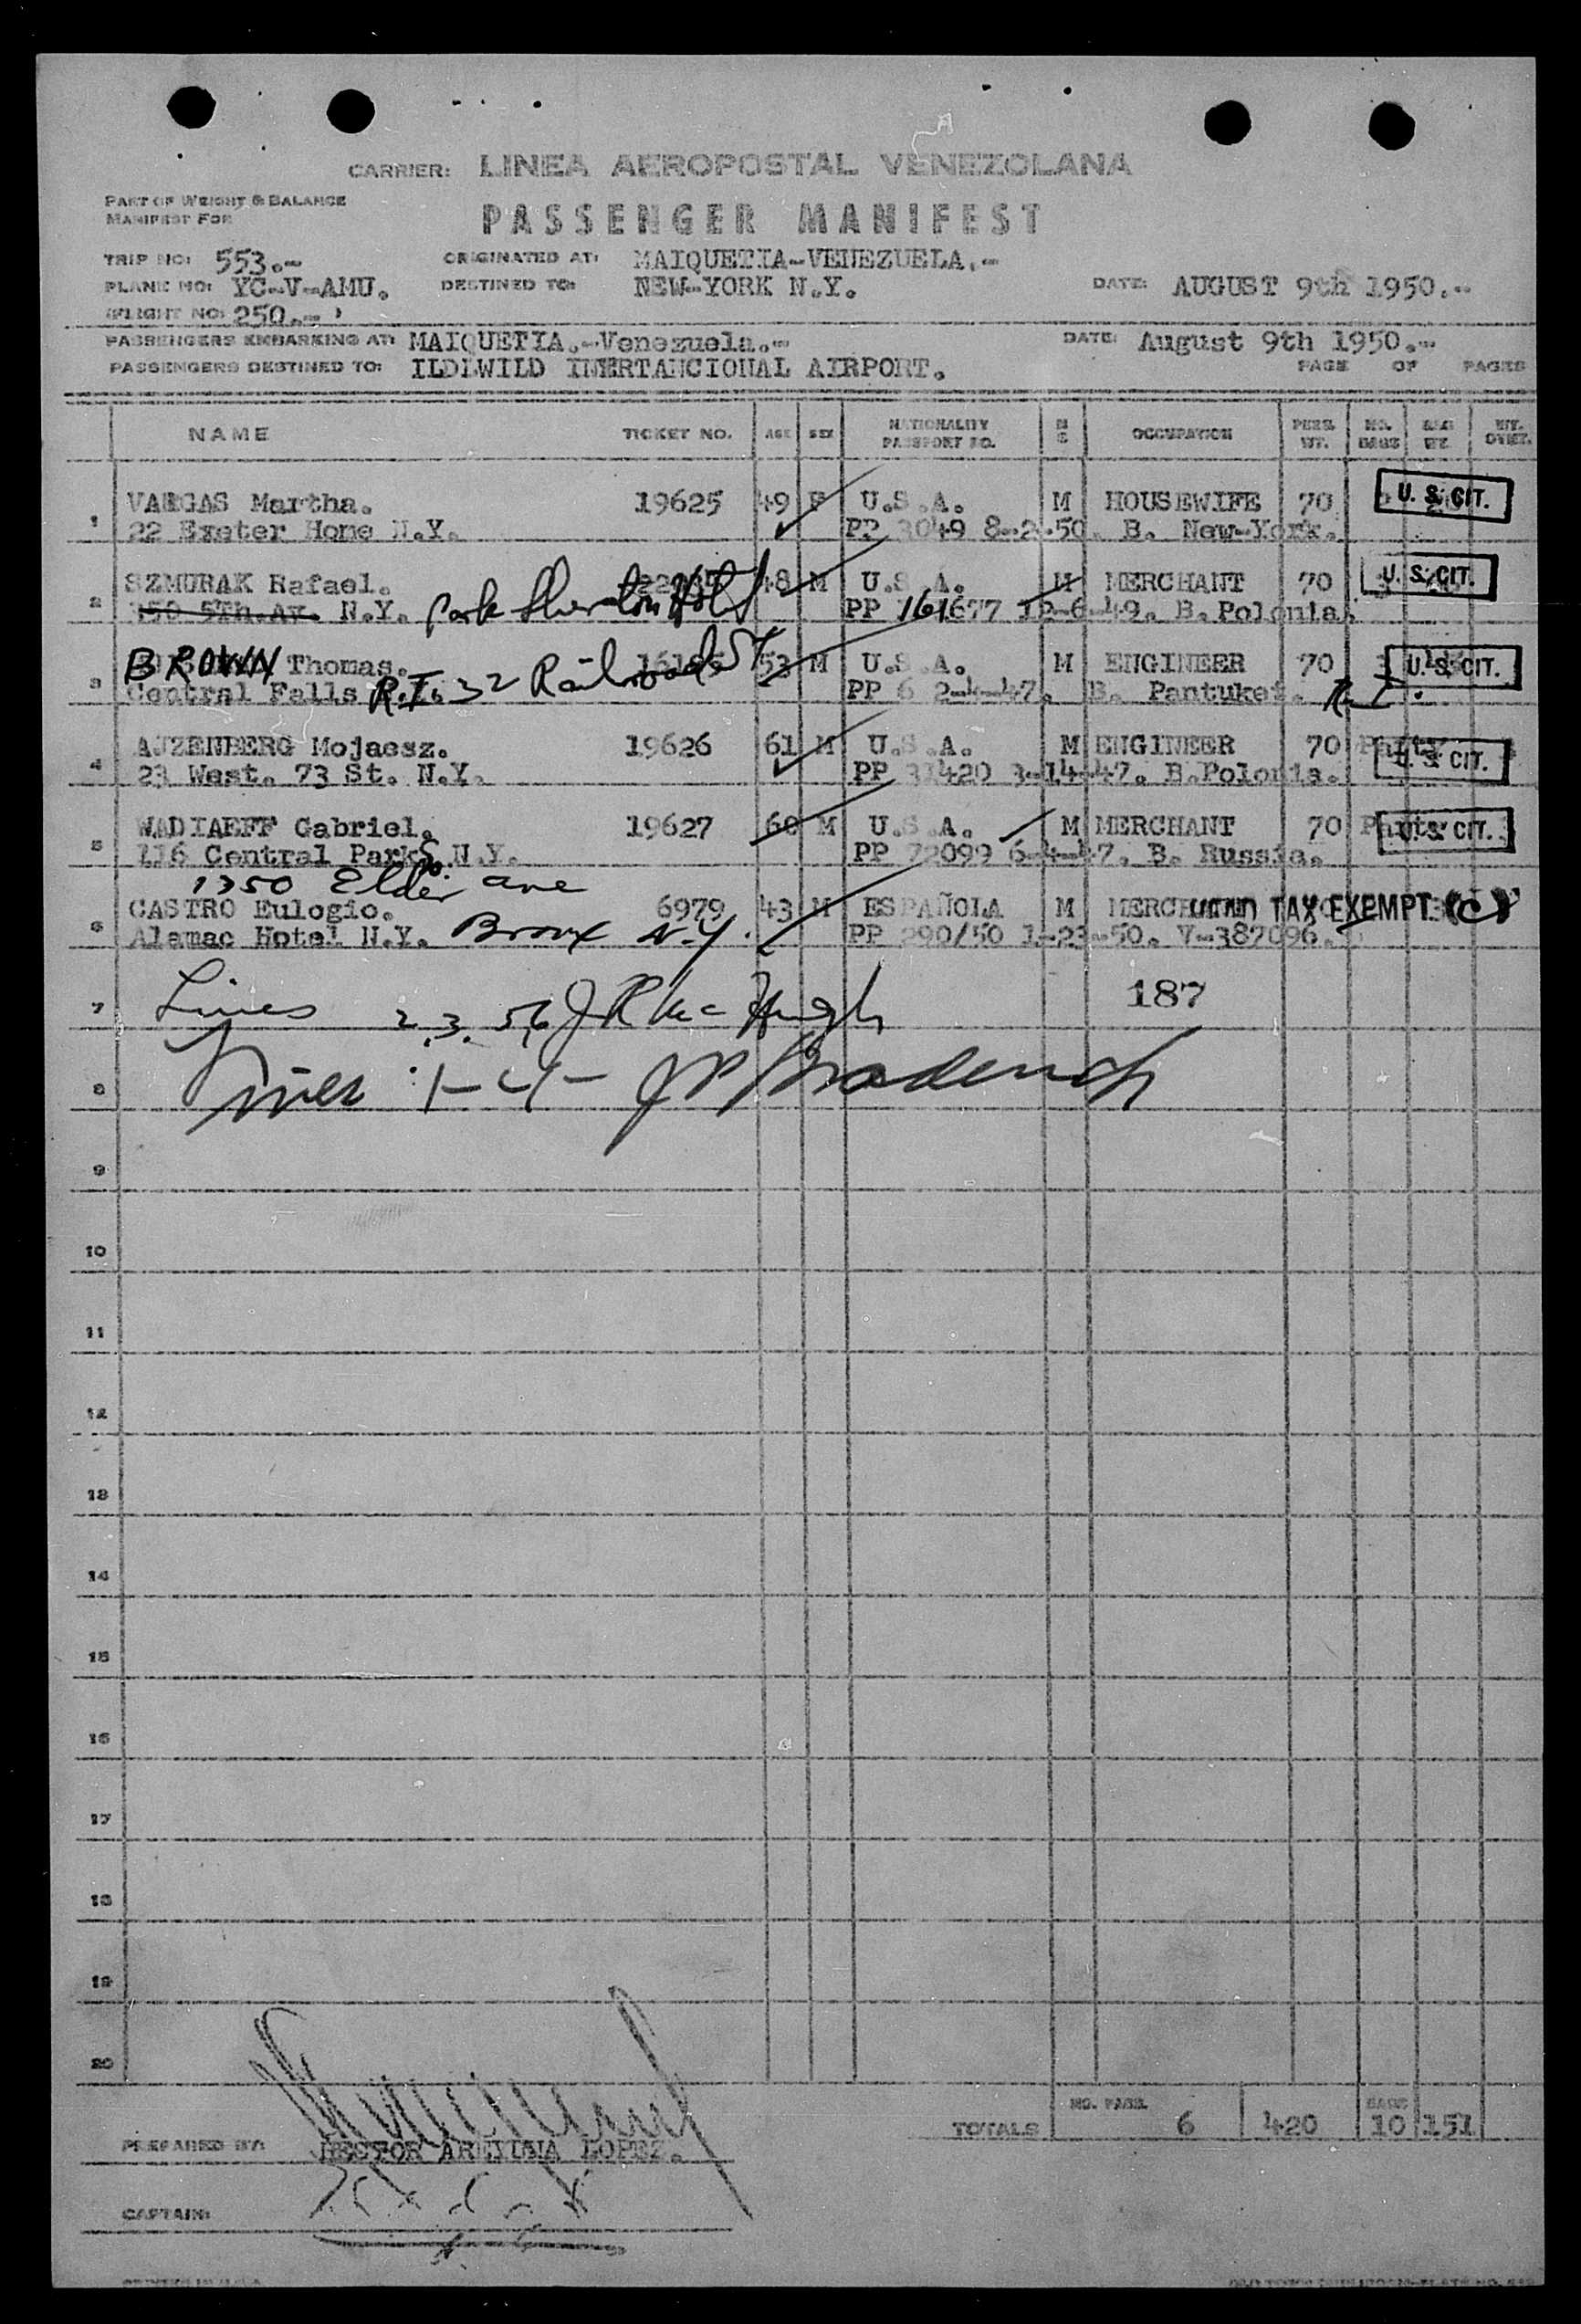 CARRIER: LINEA AEROPOSTAL VENEZOLANA
PART OF WEIGHT & BALANCE
MANIFEST FOR
PASSENGER MANIFEST
TRIP NO: 553.- ORIGINATED AT: MAIQUETIA-VENEZUELA.-
PLANE NO: YC-V-AMU. DESTINED TO: NEW-YORK N.Y. DATE: AUGUST 9th 1950.-
(FLIGHT NO: 250.- )
PASSENGERS EMBARKING AT: MAIQUETIA.-Venezuela.- DATE: August 9th 1950.-
PASSENGERS DESTINED TO: ILDLWILD INERTANCIONAL AIRPORT. PAGE OF PAGES
NAME TICKET NO. AGE SEX NATIONALITY PASSPORT NO. M S OCCUPATION PERS. WT. NO. BAGS BAG WT. WT. OVWT.
1 VARGAS Martha. 19625 49 F U.S.A. M HOUSEWIFE 70 U. S. CIT.
22 Exeter Hone N.Y. PP 3049 8-2-50. B. New-York.
2 SZMURAK Rafael. 48 M U.S.A. M MERCHANT 70 U. S. CIT.
350 5Th.Av. N.Y. Park Sheraton Hotel PP 161677 12-6-49. B. Polonia.
3 BROWN Thomas. 53 M U.S.A. M ENGINEER 70 U. S. CIT.
Central Falls R.I. 32 Railroad St PP 6 2-4-47. B. Pantuket. R.I.
4 AJZENBERG Mojaesz. 19626 61 M U.S.A. M ENGINEER 70 U. S. CIT.
23 West. 73 St. N.Y. PP 31420 3-14-47. B.Polonia.
5 WADIAEFF Gabriel. 19627 60 M U.S.A. M MERCHANT 70 U. S. CIT.
116 Central Park So. N.Y. PP 72099 6-4-47. B. Russia.
1350 Elder ave
6 CASTRO Eulogio. 6979 43 M ESPAÑOLA M HEAD TAX EXEMPT (C)
Alamac Hotel N.Y. Bronx N.Y. PP 290/50 1-23-50. V-387096.
7 Lines 2.3.5.6 J R Mc Hugh 187
8 Lines: 1-4-
9
10
11
12
13
14
15
16
17
18
19
20
NO. PASS. BAGS
TOTALS 6 420 10 151
PREPARED BY: HECTOR LOPEZ.
CAPTAIN: